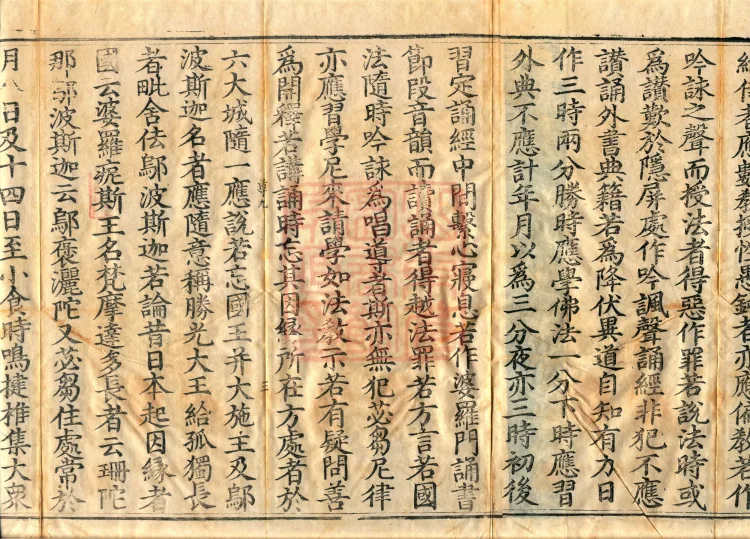 者亦應教若作
吟詠之聲而授法者得惡作罪若說法時或
為讃歎於隱屏處作吟諷聲誦經非犯不應
讃誦外書典籍若為降伏異道自知有力日
作三時兩分勝時應學佛法一分下時應習
外典不應計年月以為三分夜亦三時初後
習定誦經中間繫心寢息若作婆羅門誦書
節段音韻而讀誦者得越法罪若方言若國
法隨時吟詠為唱道者斯亦無犯苾芻尼律
亦應習學尼來請學如法教示若有疑問善
為開釋若講誦時忘其因緣所在方處者於
六大城隨一應說若忘國王并大施主及鄔
波斯迦名者應隨意稱勝光大王給孤獨長
者毗舍佉鄔波斯迦若論昔日本起因緣者
國云婆羅痆斯王名梵摩達多長者云珊陀
那鄔波斯迦云鄔褒灑陀又苾芻住處常於
月八日及十四日至小食時鳴揵椎集大眾